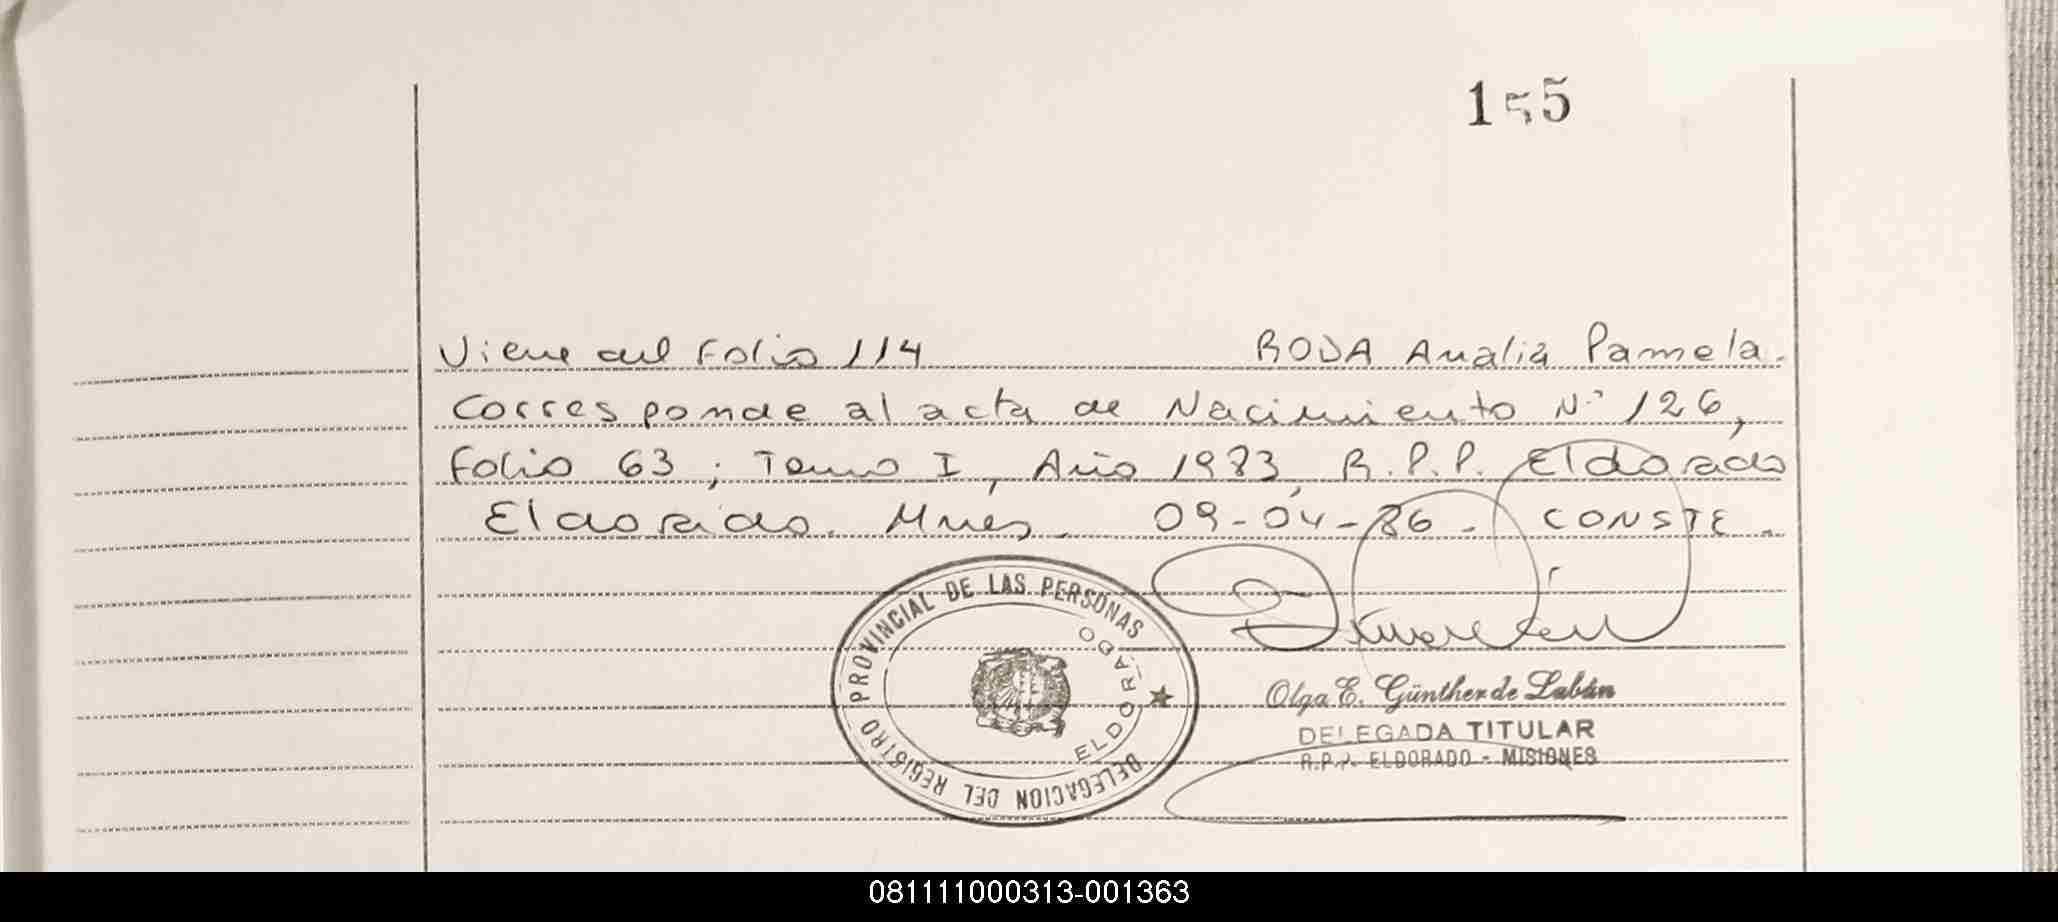 155
Viene del Folio 114 RODA Analia Pamela.
Corresponde al acta de Nacimiento N° 126,
Folio 63; Tomo I, Año 1983, R.P.P. Eldorado
Eldorado. Mnes. 09-04-86. CONSTE.
DELEGACION DEL REGISTRO PROVINCIAL DE LAS PERSONAS
ELDORADO
Olga E. Günther de Labán
DELEGADA TITULAR
R.P.P. ELDORADO - MISIONES
081111000313-001363